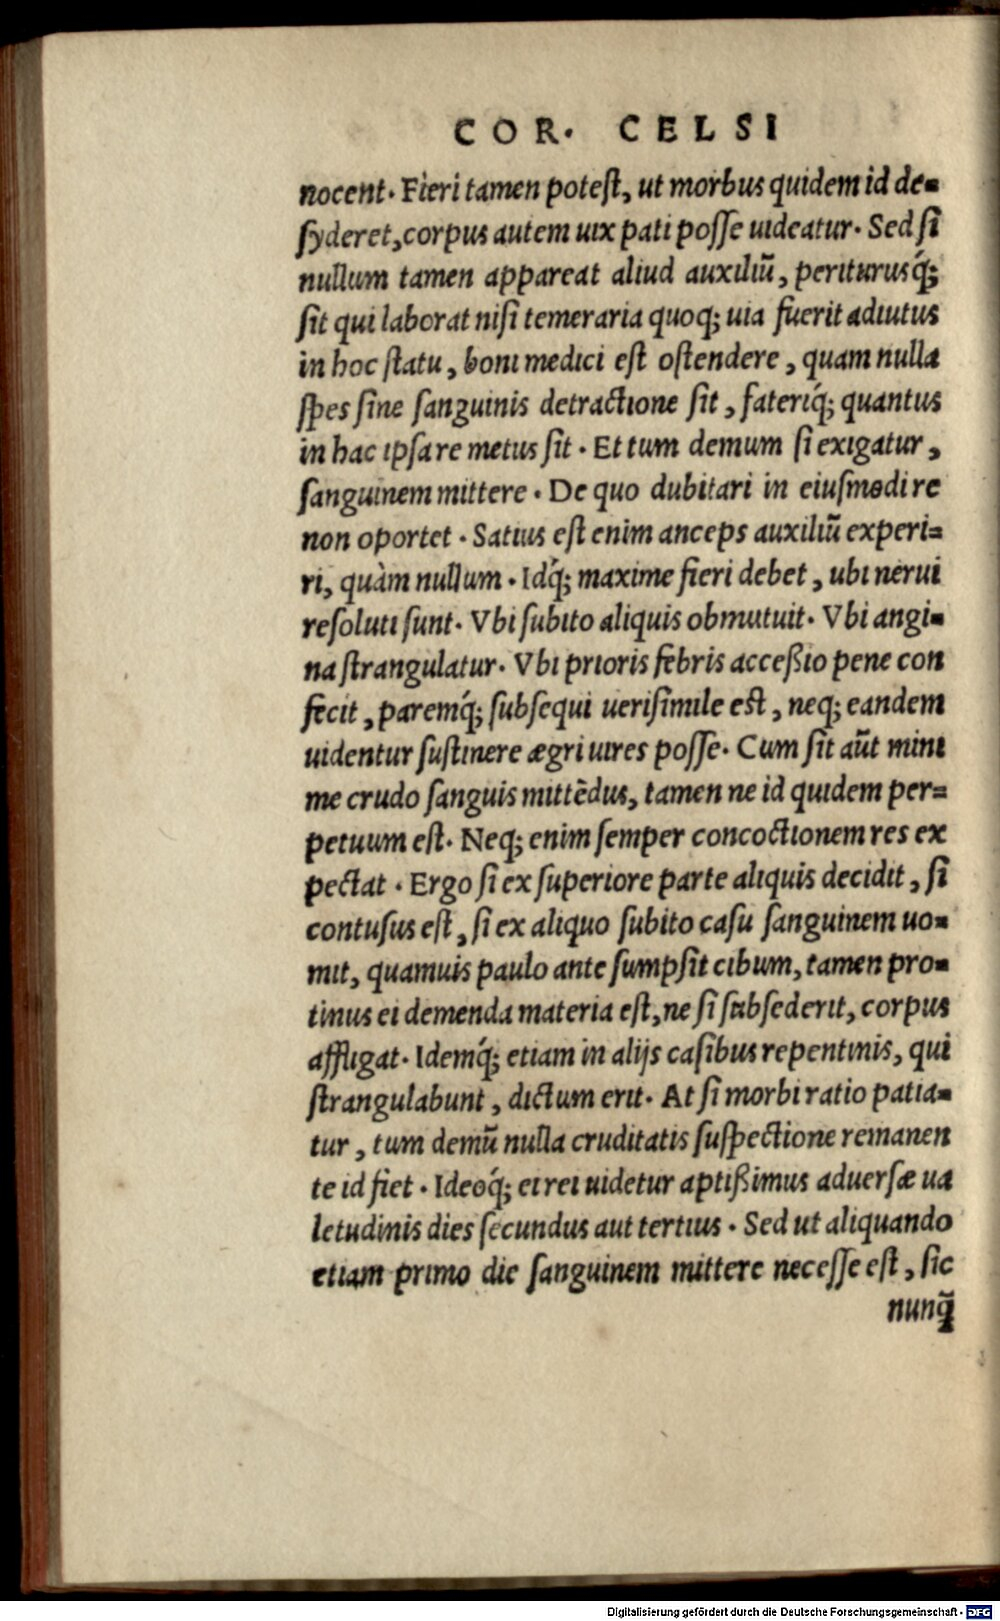 COR. CELSI
nocent. Fieri tamen potest, ut morbus quidem id de=
syderet, corpus autem uix pati posse uideatur. Sed si
nullum tamen appareat aliud auxiliũ, periturusq́;
sit qui laborat nisi temeraria quoq; uia fuerit adiutus
in hoc statu, boni medici est ostendere, quam nulla
spes sine sanguinis detractione sit, fateriq́; quantus
in hac ipsa re metus sit. Et tum demum si exigatur,
sanguinem mittere. De quo dubitari in eiusmodi re
non oportet. Satius est enim anceps auxiliũ experi=
ri, quàm nullum. Idq́; maxime fieri debet, ubi nerui
resoluti sunt. Vbi subito aliquis obmutuit. Vbi angi=
na strangulatur. Vbi prioris febris acceßio pene con
fecit, paremq́; subsequi uerisimile est, neq; eandem
uidentur sustinere ægri uires posse. Cum sit aũt mini
me crudo sanguis mittẽdus, tamen ne id quidem per=
petuum est. Neq; enim semper concoctionem res ex
pectat. Ergo si ex superiore parte aliquis decidit, si
contusus est, si ex aliquo subito casu sanguinem uo=
mit, quamuis paulo ante sumpsit cibum, tamen pro=
tinus ei demenda materia est, ne si subsederit, corpus
affligat. Idemq́; etiam in alijs casibus repentinis, qui
strangulabunt, dictum erit. At si morbi ratio patia=
tur, tum demũ nulla cruditatis suspectione remanen
te id fiet. Ideoq́; ei rei uidetur aptißimus aduersæ ua
letudinis dies secundus aut tertius. Sed ut aliquando
etiam primo die sanguinem mittere necesse est, sic
nunq̃
Digitalisierung gefördert durch die Deutsche Forschungsgemeinschaft - DFG